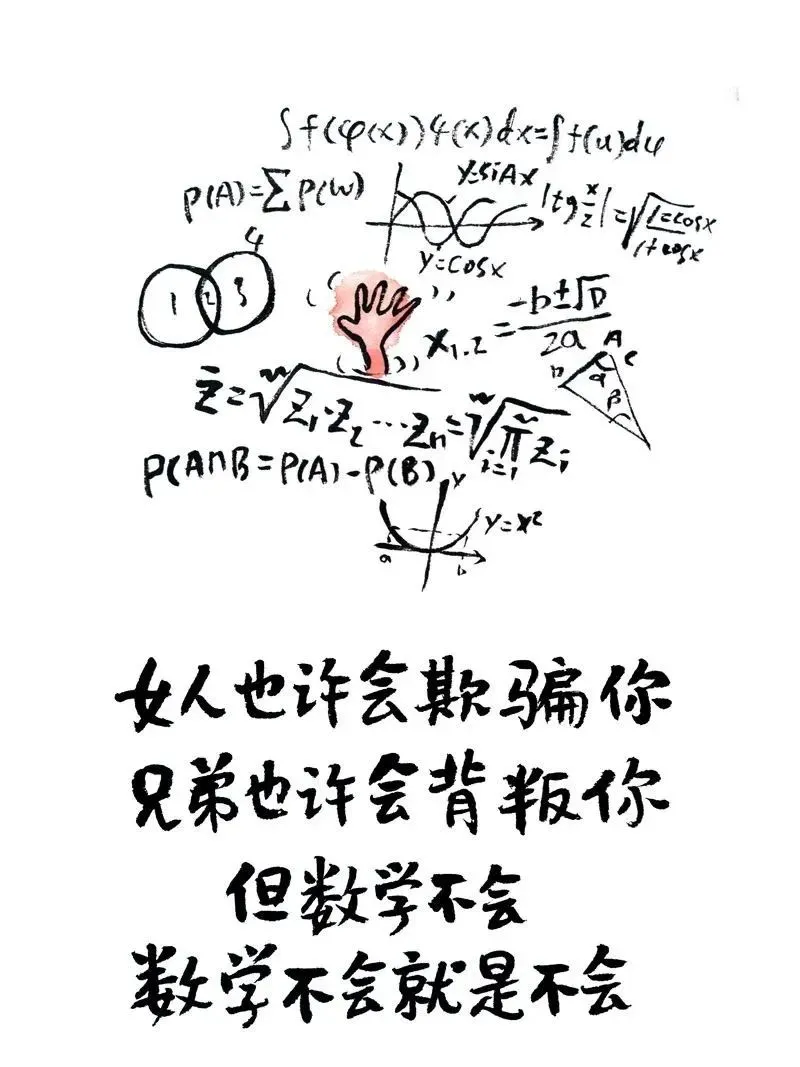 ∫f(φ(x))φ(x)dx=∫f(u)du
P(A)=∑P(W)
y=sinx
|tg x/2|=√1-cosx/1+cosx
4
1 2 3
y=cosx
x1.2=-b±√D/2a
A
B C
α
β
z̄=ⁿ√Z1·Z2···Zn=ⁿ√π Zi
i=1
P(A∩B=P(A)-P(B)
y
y=x²
a b
女人也许会欺骗你
兄弟也许会背叛你
但数学不会
数学不会就是不会